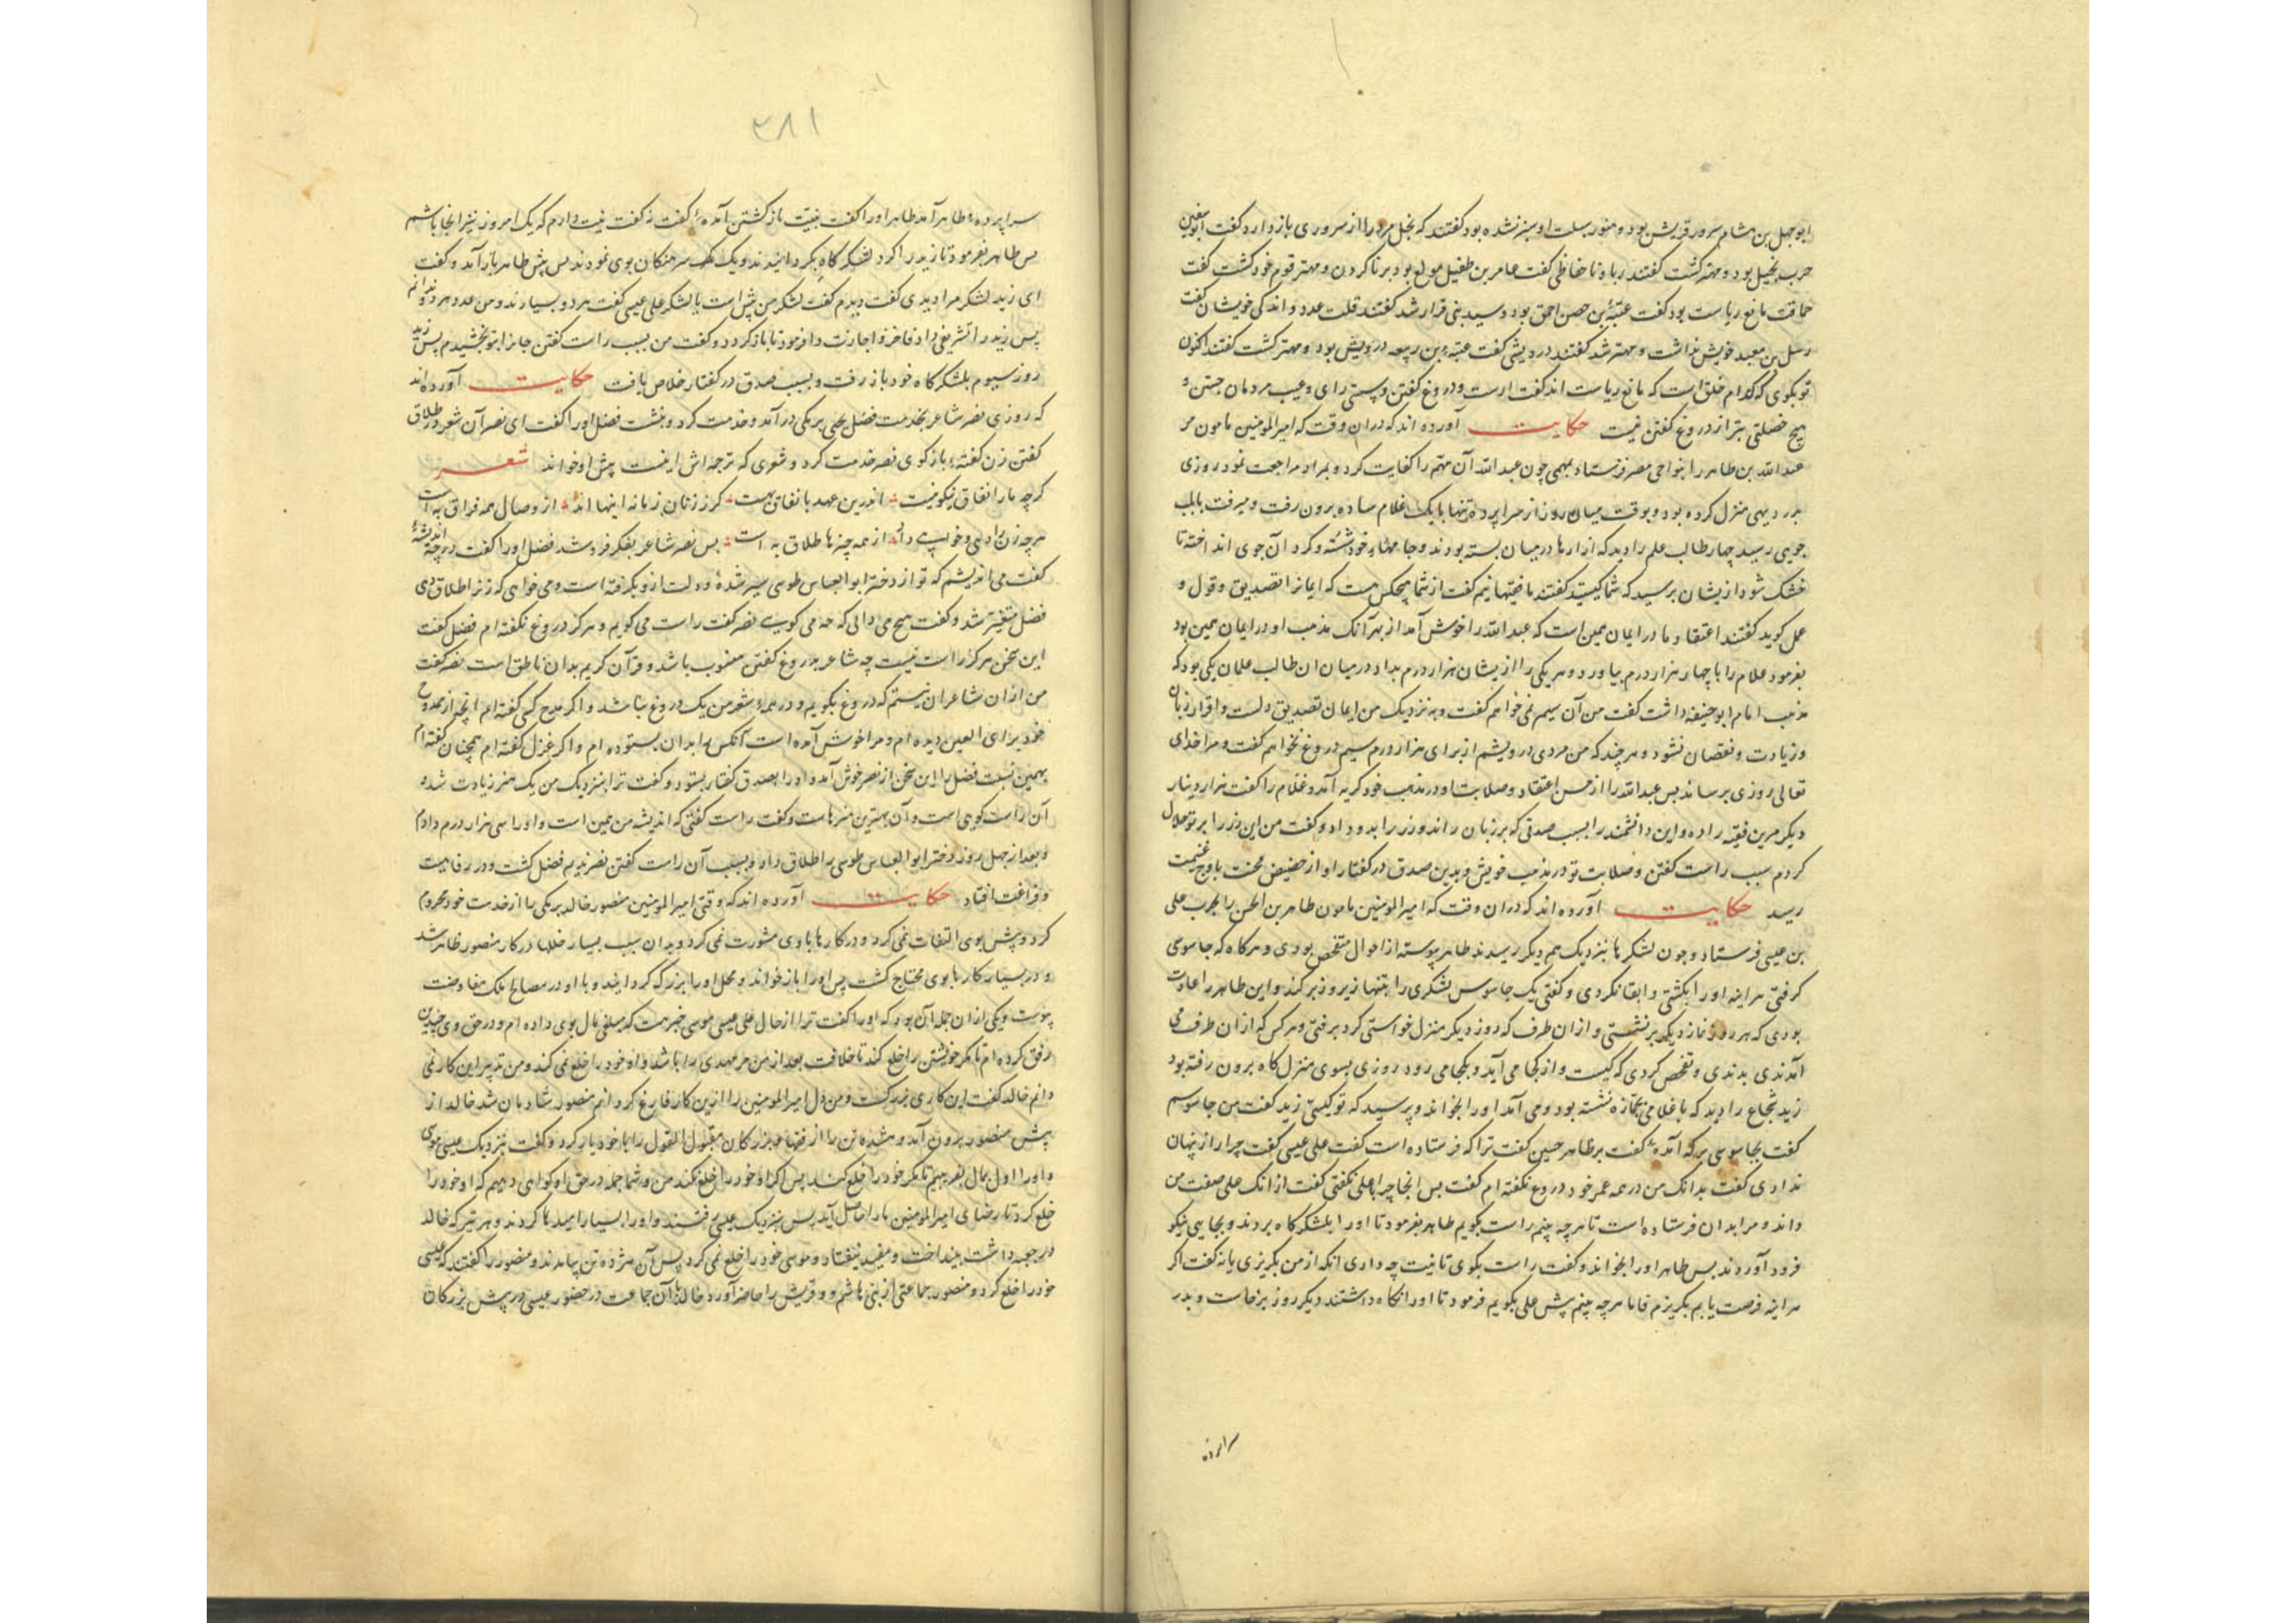 ابوجهل بن هشام سرور قریش بود و هنوز سبلت او سبز نشده بود گفتند که بخل مرد را از سروری باز دارد گفت ابوسفین
حرب بخیل بود و مهتر گشت گفتند زنا و ناحفاظی گفت عامر بن طفیل مولع بود بر زنا کردن و مهتر قوم خود گشت گفت
حماقت مانع ریاست بود گفت عتبه بن حصن احمق بود و سید بنی فزار شد گفتند قلت عدد و اندکی خویشان گفت
بن معبد خویش نداشت و مهتر شد گفتند درویشی گفت عتبه بن ربیعه درویش بود و مهتر گشت گفتند اکنون
تو بکوی که کدام خلق است که مانع ریاست اند گفت ارست و دروغ گفتن و سستی رای و عیب مردمان جستن و
هیچ خصلتی بتر از دروغ گفتن نیست حکایت آورده اند که در آن وقت که امیرالمومنین مامون مر
عبدالله بن طاهر را بنواحی مصر فرستاد بمهمی چون عبدالله آن مهم را کفایت کرد و بمراد مراجعت نمود روزی
بدر دیهی منزل کرده بود و بوقت میان روز از سرا پرده تنها با یک غلام ساده برون رفت و میرفت تا بلب
جویی رسید چهار طالب علم را دید که ازارها در میان بسته بودند و جامهاء خود شسته و کرد آن جوی انداخته تا
خشک شود ازیشان پرسید که شما کیستید گفتند ما فقیهانیم گفت از شما هیچکس هست که ایمانرا تصدیق و قول و
عمل کوید گفتند اعتقاد ما در ایمان همین است که عبدالله را خوش آمد از بهر آنک مذهب او در ایمان همین بود
بفرمود غلام را با چهار هزار درم بیاورد و هر یکی را ازیشان هزار درم بداد در میان آن طالب علمان یکی بود که
مذهب امام ابوحنیفه داشت گفت من آن سیم نمی خواهم گفت و به نزدیک من ایمان تصدیق دلست و اقرار زبان
و زیادت و نقصان نشود و هر چند که من مردی درویشم از برای هزار درم سیم دروغ نخواهم گفت و مرا خدای
تعالی روزی برساند پس عبدالله را از حسن اعتقاد و صلابت او در مذهب خود کریه آمد و غلام را گفت هزار دینار
دیکر مرین فقیه را ده و این دانشمند را بسبب صدقی که بر زبان راند و زر را بدو داد و گفت من این زر را بر تو حلال
کردم سبب راست گفتن و صلابت تو در مذهب خویش و بدین صدق در گفتار او از حضیض محنت باوج غنیمت
رسید حکایت آورده اند که در آن وقت که امیرالمومنین مامون طاهر بن الحسن را بحرب علی
بن عیسی فرستاد و چون لشکرها بنزدیک هم دیکر رسیدند طاهر پیوسته از احوال متفحص بودی و هرکاه که جاسوسی
کرفتی هر اینه اورا بکشتی و ابقا نکردی و گفتی یک جاسوس لشکری را بتنها زیر و زبر کند و این طاهر را عادت
بودی که هر روز نماز دیکر برنشستی و از آن طرف که روز دیکر منزل خواستی کرد برفتی و هر کس که از آن طرف می
آمدندی بدیدی و تفحص کردی که کیست و از کجا می آید و بکجا می رود روزی بسوی منزل کاه برون رفته بود
زید شجاع را دید که با غلامی بجمازه نشسته بود و می آمد اورا بخواند و پرسید که تو کیستی زید گفت من جاسوسم
گفت بجاسوسی بر که آمدهٔ گفت بر طاهر حسین گفت ترا که فرستاده است گفت علی عیسی گفت چرا راز پنهان
نداری گفت بدانک من در همه عمر خود دروغ نگفته ام گفت پس آنجا چرا با علی نگفتی گفت از آنک علی صفت من
داند و مرا بدان فرستاده است تا هرچه بینم راست بگویم طاهر بفرمود تا اورا بلشکرگاه بردند و بجایی نیکو
فرود آوردند پس طاهر اورا بخواند و گفت راست بکوی تا نیت چه داری آنکه از من بکریزی یا نه گفت اکر
هر اینه فرصت یابم بکریزم فاما هرچه بینم پیش علی بگویم فرمود تا اورا نکاه داشتند دیکر روز برخاست و بدر
سراپرده
۳۸۱
سراپردهٔ طاهر آمد طاهر اورا گفت بنیت باز کشتن آمدهٔ گفت نه گفت نیت دارم که یک امروز نیز اینجا باشم
پس طاهر بفرمود تا زید را کرد لشکر کاه بکردانیدند و یک یک سرهنکان بوی نمودند پس پیش طاهر باز آمد و گفت
ای زید لشکر مرا دیدی گفت دیدم گفت لشکر من بیش است یا لشکر علی عیسی گفت هر دو بسیارند و من عدد هر دو ندانم
پس زید را تشریفی داد فاخر و اجازت داد فرمود تا باز کردد و گفت من بسبب راست گفتن جانرا بتو بخشیدم پس زید
روز سیوم بلشکر کاه خود باز رفت و بسبب صدق در گفتار خلاص یافت حکایت آورده اند
که روزی نصر شاعر بخدمت فضل یحیی برمکی درآمد و خدمت کرد و بنشست فضل اورا گفت ای نصر آن شعر در طلاق
گفتن زن گفتهٔ بازکوی نصر خدمت کرد و شعری که ترجمه اش اینست پیش او خواند شعر
کرچه ما را نفاق نیکو نیست اندرین عهد با نفاق بهست کر زنان زمانه اینها اند از وصال همه فراق به است
هرچه زن را دهی و خواهی داد از همه چیزها طلاق به است پس نصر شاعر بفکر فرو شد فضل اورا گفت در چه اندیشهٔ
گفت می اندیشم که تو از دختر ابوالعباس طوسی سیر شدهٔ و دلت ازو بکرفته است و می خواهی که زنرا طلاق دهی
فضل متغیر شد و گفت هیچ می دانی که چه می گویی نصر گفت راست می کویم و هرکز دروغ نگفته ام فضل گفت
این سخن هرکز راست نیست چه شاعر بدروغ گفتن منسوب باشد و قرآن کریم بدان ناطق است نصر گفت
من از آن شاعران نیستم که دروغ بگویم و در همهٔ شعر من یک دروغ نباشد و اکر مدح کسی گفته ام آنچه از ممدوح
خود برای العین دیده ام و مرا خوش آمده است آنکس را بدان بستوده ام و اکر غزل گفته ام همچنان گفته ام
بهمین نسبت فضل را این سخن از نصر خوش آمد و اورا بصدق گفتار بستود و گفت ترا بنزدیک من یک هنر زیادت شده
آن راست کویی است و آن بهترین هنرهاست و گفت راست گفتی که اندیشه من همین است و اورا سی هزار درم دادم
و بعد از چهل روز دختر ابوالعباس طوسی را طلاق داد و بسبب آن راست گفتن نصر ندیم فضل کشت و در رفاهیت
و فراغت افتاد حکایت آورده اند که وقتی امیرالمومنین منصور خالد برمکی را از خدمت خود محروم
کرد و بیش بوی التفات نمی کرد و در کارها با وی مشورت نمی کرد و بدان سبب بسیار خللها در کار منصور ظاهر شد
و در بسیار کارها بوی محتاج کشت پس اورا باز خواند و محل اورا بزرگ کردانید و با او در مصالح ملک مفاوضت
پیوست و یکی از آن جمله آن بود که اورا گفت ترا از حال علی عیسی موسی خبر هست که مبلغی مال بوی داده ام و در حق وی چندین
رفق کرده ام تا مکر خویشتن را خلع کند تا خلافت بعد از من مر مهدی را باشد و او خود را خلع نمی کند و من تدبیر این کار نمی
دانم خالد گفت این کاری بزرگست و من دل امیرالمومنین را ازین کار فارغ کردانم منصور شادمان شد خالد از
پیش منصور برون آمد و هشده تن را از فقها و بزرکان مقبول القول را با خود یار کرد و گفت بنزدیک عیسی موسی
و اورا اول بمال بفریبیم تا مکر خود را خلع کند پس اکر او خود را خلع نکند من و شما جمله در حق او کواهی دهیم که او خود را
خلع کرد تا رضای امیرالمومنین ما را حاصل آید پس بنزدیک عیسی رفتند و اورا بسیار امیدها کردند و هر تیر که خالد
در جعبه داشت بینداخت و مفید نیفتاد و موسی خود را خلع نمی کرد پس آن هژده تن بیامدند و منصور را گفتند که عیسی
خود را خلع کرد و منصور جماعتی از بنی هاشم و قریش را حاضر آورد خالد با آن جماعت در حضور عیسی در پیش بزرکان